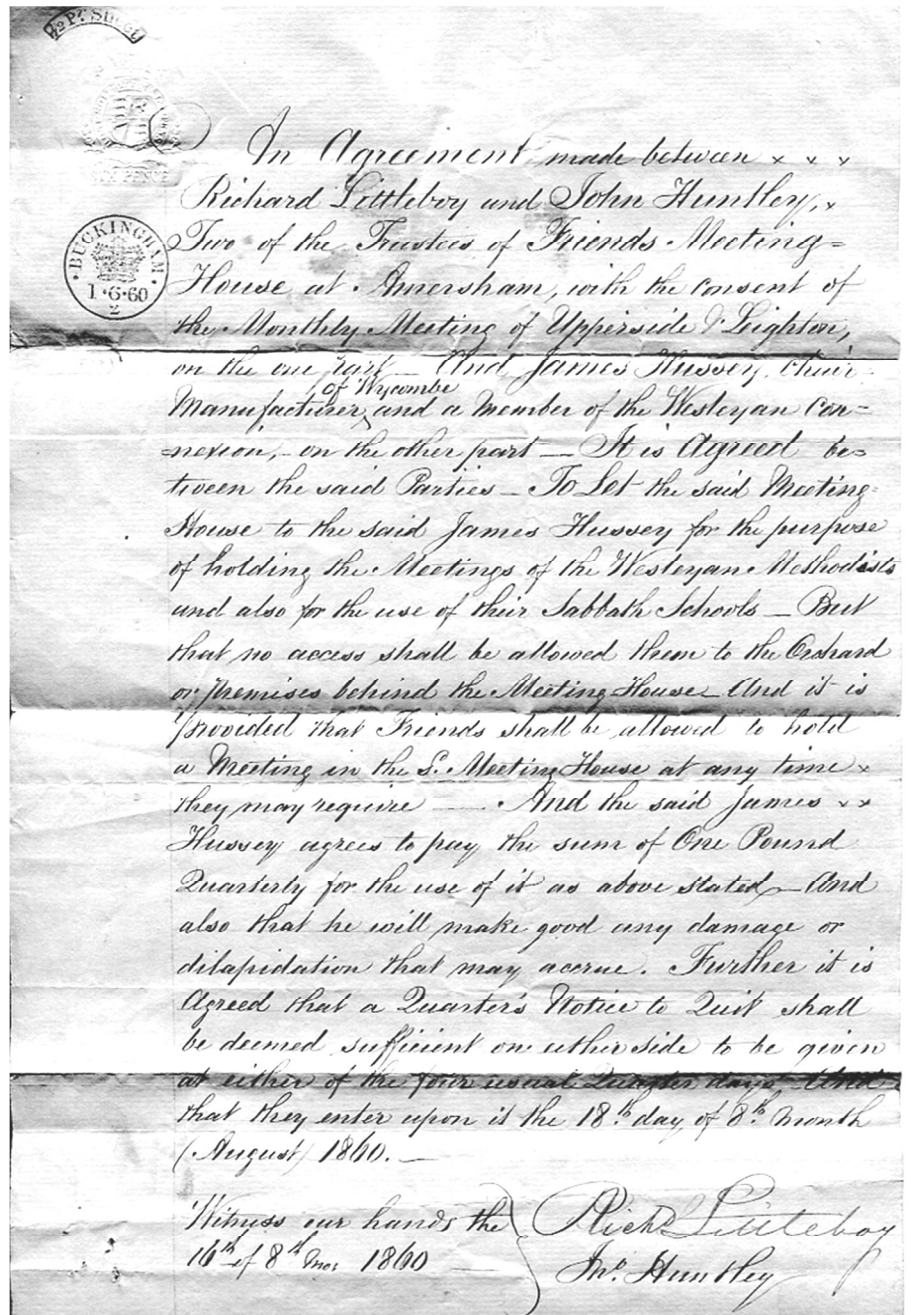 Pr. Sheet
SIX PENCE
In Agreement made between × × ×
Richard Littleboy and John Huntley, ×
BUCKINGHAM
1·6·60
2
Two of the Trustees of Friends Meeting=
House at Amersham, with the consent of
the Monthly Meeting of Upperside & Leighton,
on the one part — And James Hussey, Chair-
of Wycombe
Manufacturer, and a Member of the Wesleyan Con=
=nexion, - on the other part — It is Agreed be=
tween the said Parties — To Let the said Meeting=
House to the said James Hussey for the purpose
of holding the Meetings of the Wesleyan Methodists
and also for the use of their Sabbath Schools — But
that no access shall be allowed them to the Orchard
or premises behind the Meeting House — And it is
provided that Friends shall be allowed to hold
a Meeting in the s. Meeting House at any time ×
they may require — And the said James × ×
Hussey agrees to pay the sum of One Pound
Quarterly for the use of it as above stated — And
also that he will make good any damage or
dilapidation that may accrue. Further it is
Agreed that a Quarter's Notice to Quit shall
be deemed sufficient on either side to be given
at either of the four usual Quarter days And
that they enter upon it the 18th day of 8th Month
(August) 1860. —
Witness our hands the
16th of 8th Mo. 1860
Richd Littleboy
Jno. Huntley